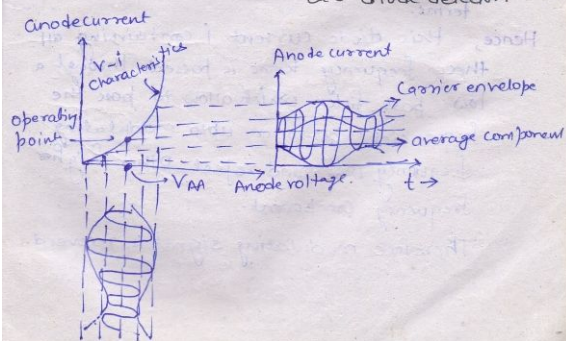 anodecurrent
V-i
characteristics
operating
point
VAA
Anodevoltage.
Anode current
Carrier envelope
average component
t →